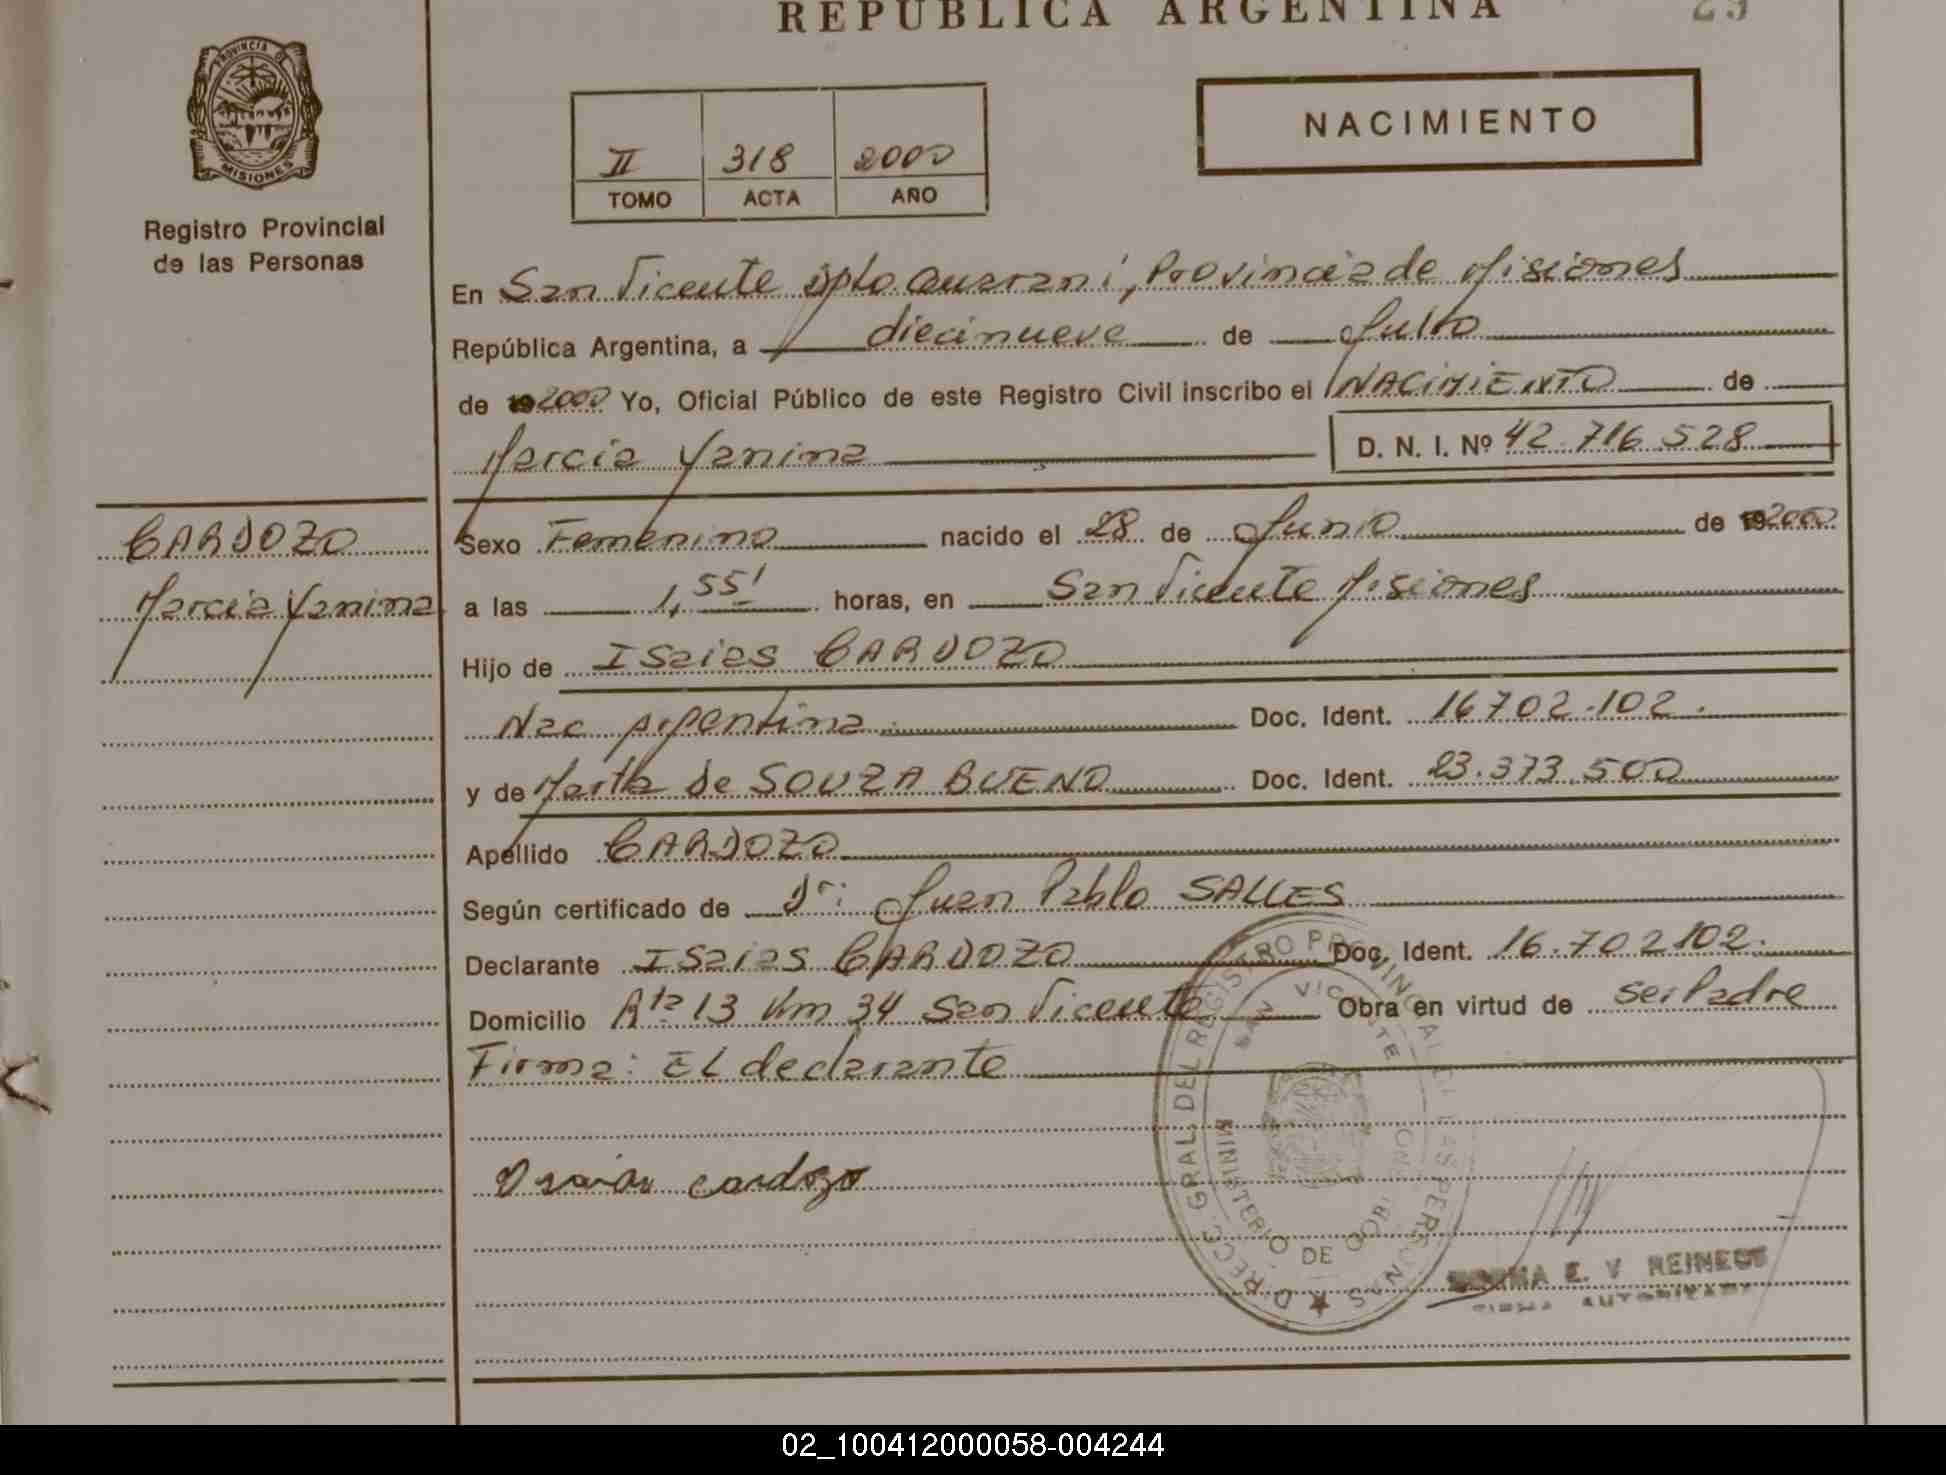 REPUBLICA ARGENTINA
29
PROVINCIA DE
MISIONES
Registro Provincial
de las Personas
II 318 2000
TOMO ACTA AÑO
NACIMIENTO
En San Vicente Dpto Guarani, Provincia de Misiones
República Argentina, a diecinueve de Julio
de 19 2000 Yo, Oficial Público de este Registro Civil inscribo el NACIMIENTO de
Marcia Yanina D. N. I. Nº 42.716.528
CARDOZO
Marcia Yanina
Sexo Femenino nacido el 28 de Junio de 19 2000
a las 1,55' horas, en San Vicente Misiones
Hijo de Isaias CARDOZO
Nac Argentina Doc. Ident. 16702.102.
y de Marta de SOUZA BUENO Doc. Ident. 23.373.500
Apellido CARDOZO
Según certificado de Dr: Juan Pablo SALLES
Declarante Isaias CARDOZO Doc. Ident. 16.702102.
Domicilio Rta 13 Km 34 San Vicente Obra en virtud de ser Padre
Firma: El declarante
cardozo
DIRECC. GRAL. DEL REGISTRO PROVINCIAL DE LAS PERSONAS
SAN VICENTE
MINISTERIO DE GOB
NORMA E. V. REINECK
FIRMA AUTORIZADA
02_100412000058-004244